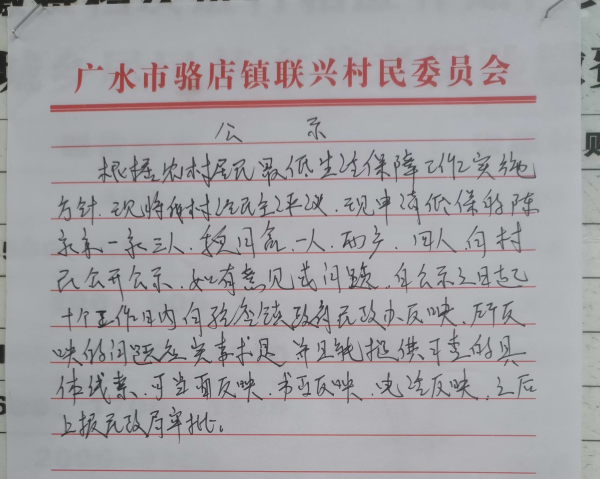 广水市骆店镇联兴村民委员会
公 示
根据农村居民最低生活保障工作实施
方针.现将我村经民主评议.现申请低保的陈
家一家三人.一人.两户.四人.向村
民公开公示.如有意见或问题.自公示之日起
十个工作日内向骆店镇政府民政办反映.所反
映的问题应实事求是.并且能提供可查的具
体线索.可当面反映.书面反映.电话反映.之后
上报民政局审批。